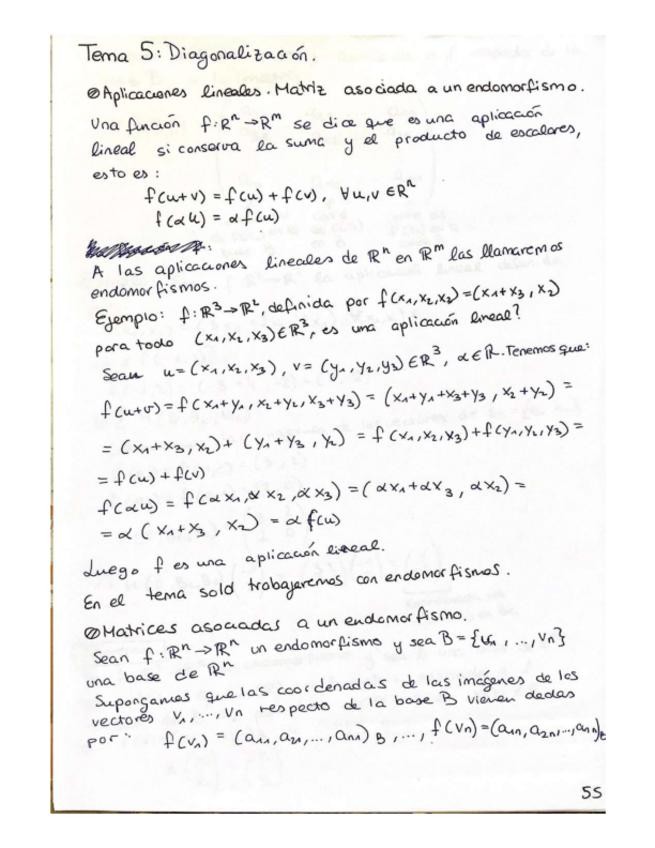 Tema 5: Diagonalización.
Aplicaciones lineales. Matriz asociada a un endomorfismo.
Una función f:ℝⁿ→ℝᵐ se dice que es una aplicación
lineal si conserva la suma y el producto de escalares,
esto es:
f(u+v) = f(u) + f(v), ∀u,v ∈ℝⁿ
f(αu) = αf(u)
A las aplicaciones lineales de ℝⁿ en ℝᵐ las llamaremos
endomorfismos.
Ejemplo: f:ℝ³→ℝ², definida por f(x₁,x₂,x₃)=(x₁+x₃, x₂)
para todo (x₁,x₂,x₃)∈ℝ³, es una aplicación lineal?
Sean u=(x₁,x₂,x₃), v=(y₁,y₂,y₃)∈ℝ³, α∈ℝ. Tenemos que:
f(u+v)=f(x₁+y₁,x₂+y₂,x₃+y₃) = (x₁+y₁+x₃+y₃, x₂+y₂) =
= (x₁+x₃,x₂)+(y₁+y₃,y₂) = f(x₁,x₂,x₃)+f(y₁,y₂,y₃) =
= f(u)+f(v)
f(αu) = f(αx₁,αx₂,αx₃) = (αx₁+αx₃, αx₂) =
= α(x₁+x₃, x₂) = αf(u)
Luego f es una aplicación lineal.
En el tema solo trabajaremos con endomorfismos.
Matrices asociadas a un endomorfismo.
Sean f:ℝⁿ→ℝⁿ un endomorfismo y sea B={v₁,...,vn}
una base de ℝⁿ
Supongamos que las coordenadas de las imágenes de los
vectores v₁,...,vn respecto de la base B vienen dadas
por: f(v₁) = (a₁₁,a₂₁,...,an₁)B,..., f(vn)=(a₁n,a₂n,...,ann)B
55